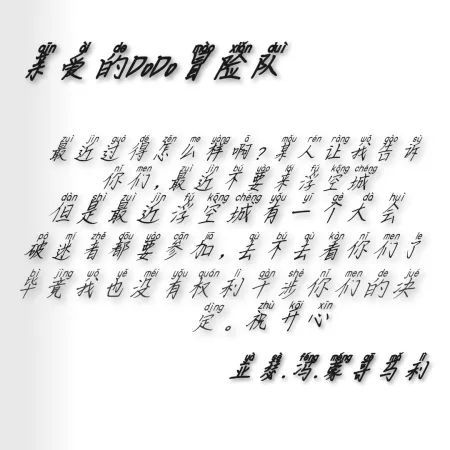 qīn ài de mào xiǎn duì
亲爱的DoDo冒险队
zuì jìn guò dé zěn me yàng ā mǒu rén ràng wǒ gào sù
最近过得怎么样啊？某人让我告诉
nǐ men zuì jìn bú yào lái fú kōng chéng
你们,最近不要来浮空城
dàn shì zuì jìn fú kōng chéng yǒu yī gè dà huì
但是最近浮空城有一个大会
pò mí zhě dōu yào cān jiā qù bú qù kàn nǐ men le
破迷者都要参加,去不去看你们了
bì jìng wǒ yě méi yǒu quán lì gān shè nǐ men de jué
毕竟我也没有权利干涉你们的决
dìng zhù kāi xīn
定。祝开心
yà sè féng méng gē mǎ lì
亚瑟.冯.蒙哥马利